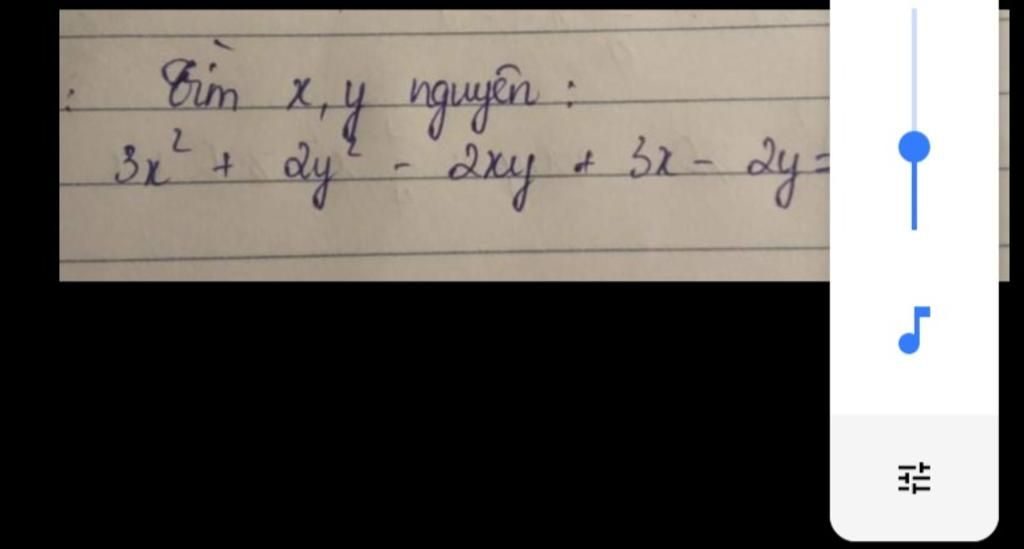 : Tìm x, y nguyên :
3x² + 2y² - 2xy + 3x - 2y =